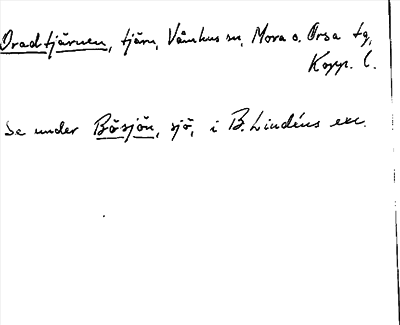 Dradtjärnen, tjärn, Våmhus sn, Mora o. Orsa tg,
Kopp. l.
Se under Bösjön, sjö, i B. Lindéns exc.